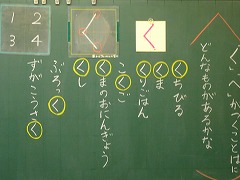 く」へかつくことばに
どんなものがあるかな
くちびる
くま
くりごはん
こくご
くまのおにんぎょう
くし
ぶろっく
ずがこうさく
く
く
1 2
3 4